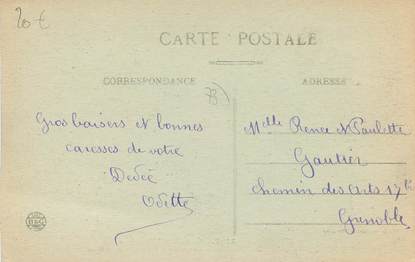 20 €
CARTE POSTALE
CORRESPONDANCE
ADRESSE
73
Gros baisers et bonnes
caresses de votre
Dédée
Odette
Mlle Renée et Paulette
Gautier
Chemin des
Grenoble